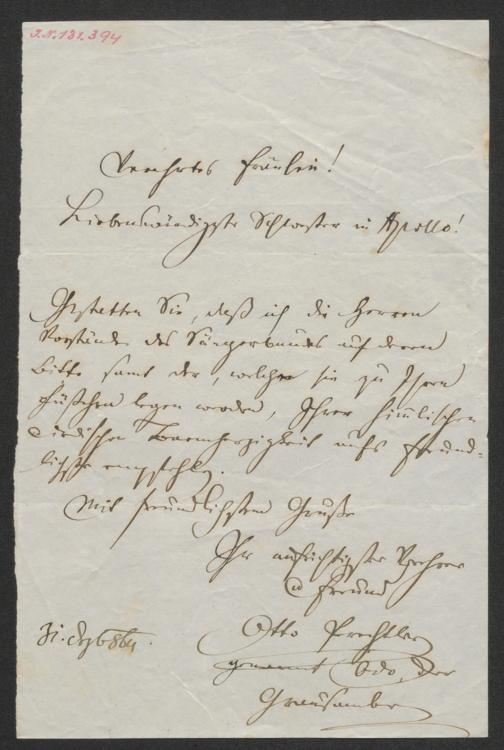 I.N. 131.394
Verehrtes Fräulein!
Liebenswürdigste Schwester in Apollo!
Gestatten Sie, daß ich die Herren
Vorstände des Sängerbundes auf deren
Bitte samt der, welche sie zu Ihren
Füßchen legen werden, Ihrer himmlischen
irdischen Barmherzigkeit aufs freund-
lichste empfehle.
Mit freundlichstem Gruße
Ihr aufrichtigster Verehrer
u Freund
Otto Prechtler
genannt Odo, der
Grausame
31. Dez 864